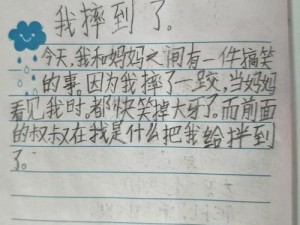 我摔到了。
今天,我和妈妈之间有一件搞笑
的事。因为我摔了一跤,当妈妈
看见我时。都快笑掉大牙了。而前面
的叔叔在找是什么把我给拌到
了。